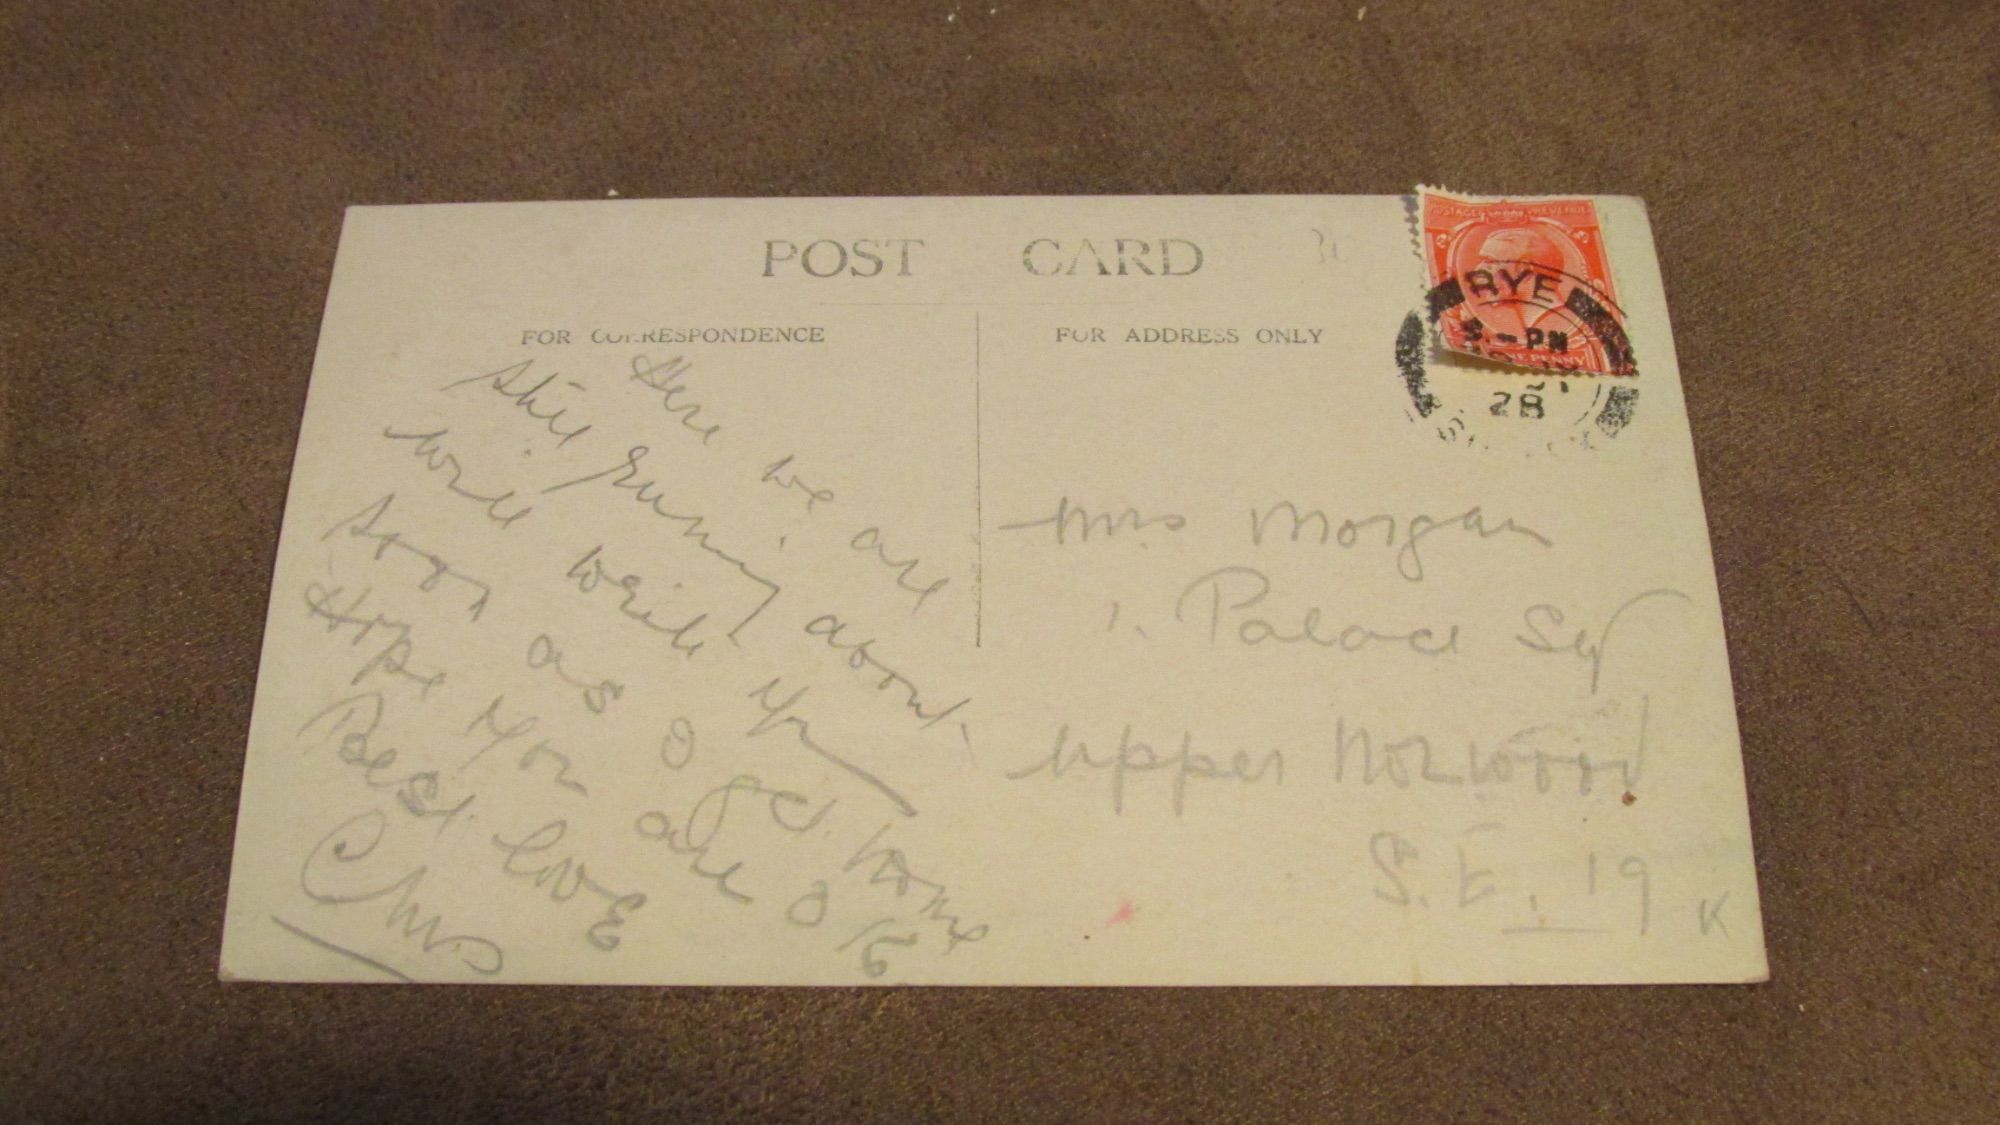 POST CARD
FOR CORRESPONDENCE
FOR ADDRESS ONLY
POSTAGE REVENUE
ONE PENNY
RYE
PM
28
Here we are
still running about
will write you
soon as I get home
Hope you are O/6
Best love
Chris
Mrs Morgan
1. Palace Sq
Upper Norwood
S.E. 19
K